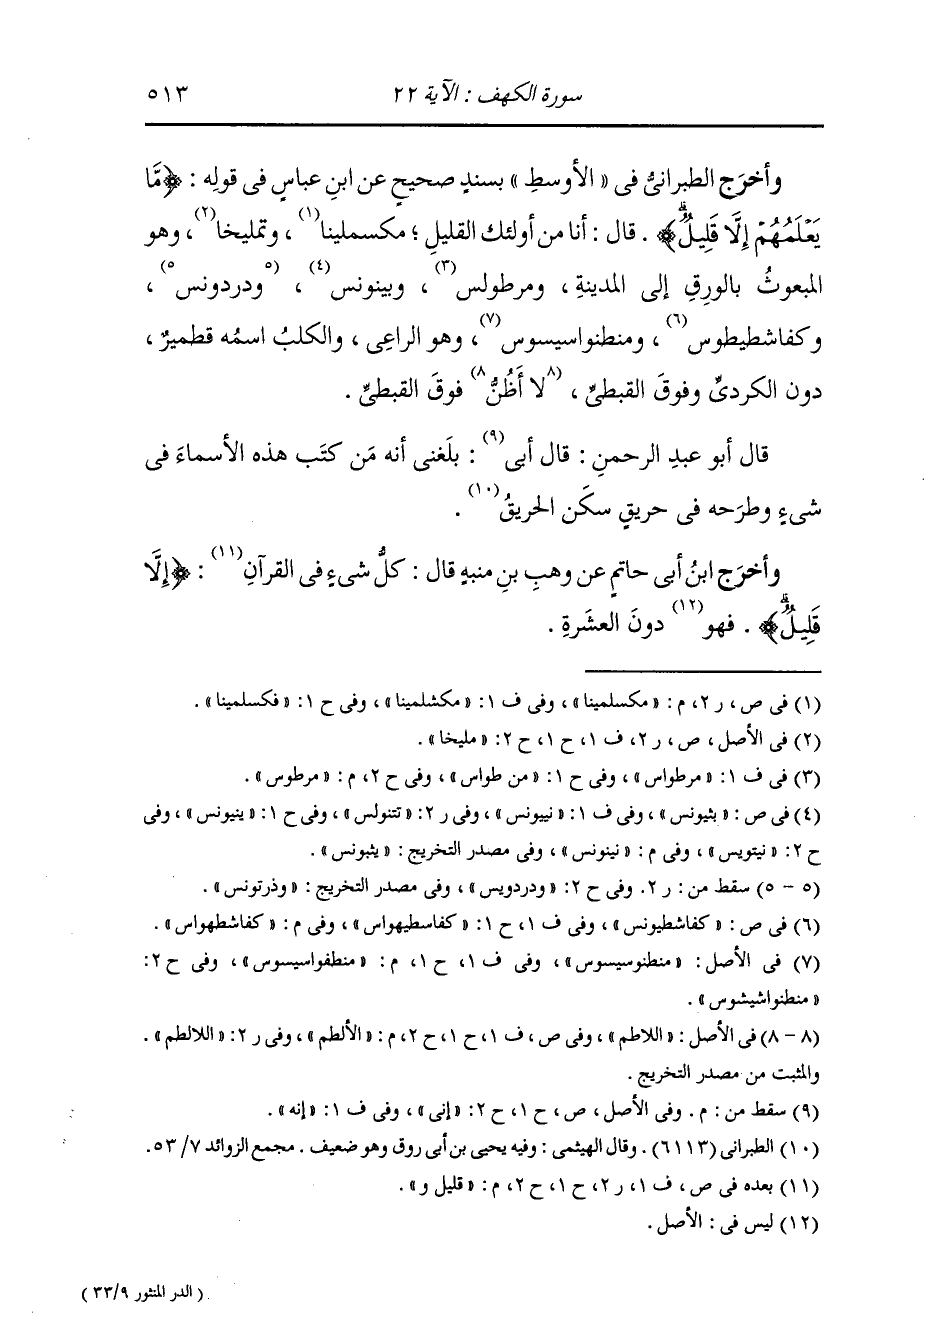 سورة الكهف : الآية ٢٢ ٥١٣
وأخرَج الطبرانىُّ فى « الأوسطِ » بسندٍ صحيحٍ عن ابنِ عباسٍ فى قولِه : ﴿مَّا
يَعْلَمُهُمْ إِلَّا قَلِيلٌ﴾ . قال : أنا من أولئك القليلِ ؛ مكسملينا(١) ، وتمليخا(٢) ، وهو
المبعوثُ بالورِقِ إلى المدينةِ ، ومرطولس(٣) ، وبينونس(٤) ، (٥ ودردونس ٥) ،
وكفاشطيطوس(٦) ، ومنطنواسيسوس(٧) ، وهو الراعِى ، والكلبُ اسمُه قطميرٌ ،
دون الكردىِّ وفوقَ القبطىِّ ، (٨ لا أَظُنُّ ٨) فوقَ القبطىِّ .
قال أبو عبدِ الرحمنِ : قال أبى(٩) : بلَغنى أنه مَن كتَب هذه الأسماءَ فى
شىءٍ وطرَحه فى حريقٍ سكَن الحريقُ(١٠) .
وأخرَج ابنُ أبى حاتمٍ عن وهبِ بنِ منبهٍ قال : كلُّ شىءٍ فى القرآنِ(١١) : ﴿إِلَّا
قَلِيلٌ﴾ . فهو(١٢) دونَ العشَرةِ .
(١) فى ص ، ر ٢، م : « مكسلمينا » ، وفى ف ١: « مكشلمينا » ، وفى ح ١: « فكسلمينا » .
(٢) فى الأصل ، ص ، ر ٢، ف ١، ح ١، ح ٢: « مليخا » .
(٣) فى ف ١: « مرطواس » ، وفى ح ١: « من طواس » ، وفى ح ٢، م : « مرطوس » .
(٤) فى ص : « بثيونس » ، وفى ف ١: « نييونس » ، وفى ر ٢: « تتنولس » ، وفى ح ١: « ينيونس » ، وفى
ح ٢: « نيتويس » ، وفى م : « نينونس » ، وفى مصدر التخريج : « يثبونس » .
(٥ - ٥) سقط من : ر ٢. وفى ح ٢: « ودردويس » ، وفى مصدر التخريج : « وذرتونس » .
(٦) فى ص : « كفاشطيونس » ، وفى ف ١، ح ١: « كفاسطيهواس » ، وفى م : « كفاشطهواس » .
(٧) فى الأصل : « منطنوسيسوس » ، وفى ف ١، ح ١، م : « منطفواسيسوس » ، وفى ح ٢:
« منطنواشيشوس » .
(٨ - ٨) فى الأصل : « اللاطم » ، وفى ص ، ف ١، ح ١، ح ٢، م : « الألطم » ، وفى ر ٢: « اللالطم » .
والمثبت من مصدر التخريج .
(٩) سقط من : م . وفى الأصل ، ص ، ح ١، ح ٢: « إنى » ، وفى ف ١: « إنه » .
(١٠) الطبرانى (٦١١٣) . وقال الهيثمى : وفيه يحيى بن أبى روق وهو ضعيف . مجمع الزوائد ٧/ ٥٣.
(١١) بعده فى ص ، ف ١، ر ٢، ح ١، ح ٢، م : « قليل و » .
(١٢) ليس فى : الأصل .
( الدر المنثور ٣٣/٩ )